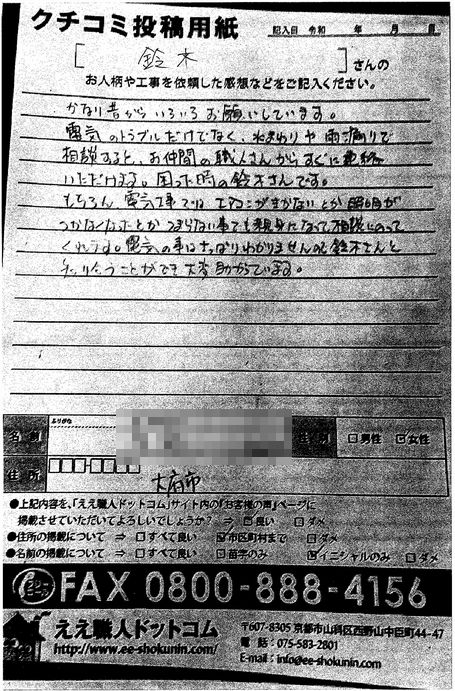 クチコミ投稿用紙
記入日 令和 年 月 日
[ 鈴木 ]さんの
お人柄や工事を依頼した感想などをご記入ください。
かなり昔からいろいろお願いしています。
電気のトラブルだけでなく、水まわりや雨漏りで
相談すると、お仲間の職人さんからすぐに連絡
いただけます。困った時の鈴木さんです。
もちろん電気工事では エアコンがきかないとか照明が
つかなくなったとか つまらない事でも親身になって相談にのって
くれます。電気の事はさっぱりわかりませんので鈴木さんと
知り合うことができ大変助かっています。
ふりがな
名前
性別 □男性 ☑女性
住所
大府市
●上記内容を、「ええ職人ドットコム」サイト内の「お客様の声」ページに
掲載させていただいてよろしいでしょうか? ⇒ ☑良い □ダメ
●住所の掲載について ⇒ □すべて良い ☑市区町村まで □ダメ
●名前の掲載について ⇒ □すべて良い □苗字のみ ☑イニシャルのみ □ダメ
フリーダイヤル
FAX 0800-888-4156
ええ職人ドットコム
http://www.ee-shokunin.com/
〒607-8305 京都市山科区西野山中臣町44-47
電話:075-583-2801
E-mail:info@ee-shokunin.com